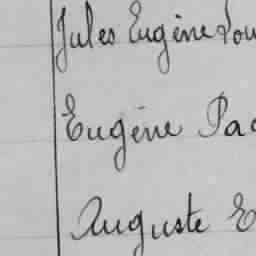 Jules Eugène Lou
Eugène Pac
Auguste E